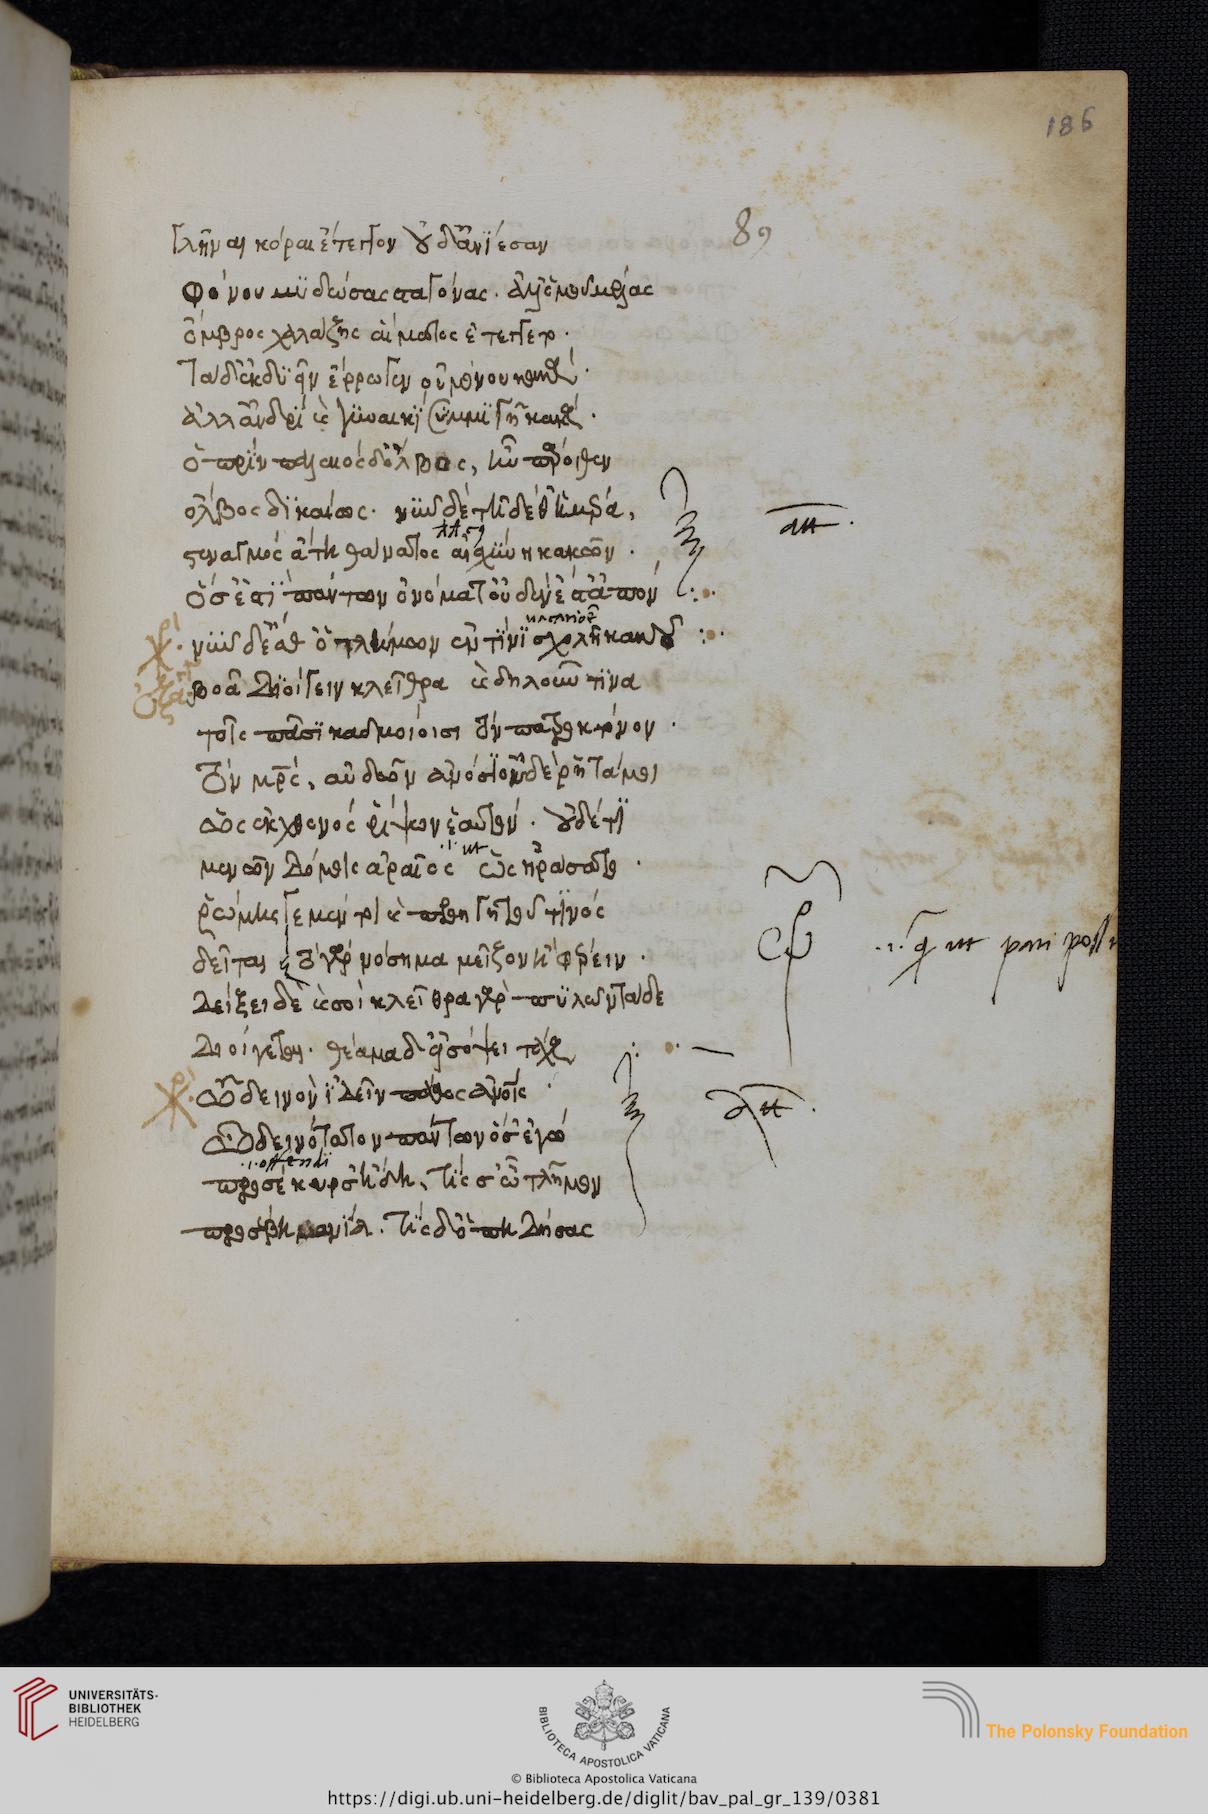 186
89
γλῆναι κόραι ἔτεγγον οὐδ᾽ ἀνίεσαν
φόνου μυδώσας σταγόνας. ἀλλ᾽ ὁμοῦ μέλας
ὄμβρος χαλάζης αἵματος ἐτέγγετο.
τάδ᾽ ἐκ δυοῖν ἔρρωγεν οὐ μόνου κακά.
ἀλλ᾽ ἀνδρὶ καὶ γυναικὶ συμμιγῆ κακά.
ὁ πρὶν παλαιὸς δ᾽ ὄλβος, ἦν πάροιθεν
ὄλβος δικαίως. νῦν δὲ τῇδε θἠμέρᾳ,
στεναγμός ἄτη θάνατος αἰσχύνη κακῶν.
ὅσ᾽ ἐστὶ πάντων ὀνόματ᾽ οὐδέν ἐστ᾽ ἀπόν
νῦν δ᾽ ἔσθ᾽ ὁ τλήμων ἐν τίνι σχολῇ κακοῦ
βοᾷ διοίγειν κλεῖθρα καὶ δηλοῦν τινα
τοῖς πᾶσι καδμείοισι τὸν πατροκτόνον.
τὸν μρς, αὐδῶν ἀνόσι᾽ οὐδὲ ῥητά μοι
ὡς ἐκ χθονός ῥίψων ἑαυτόν. οὐδ᾽ ἔτι
μενῶν δόμοις ἀραῖος ὡς ἠράσατο.
ῥώμης γε μέν τοι καὶ προηγητοῦ τινός
δεῖται τὸ γὰρ νόσημα μεῖζον ἢ φέρειν.
δείξει δὲ καὶ σοί κλεῖθρα γὰρ πυλῶν τάδε
διοίγεται. θέαμα δ᾽ εἰσόψει τάχα
ὦ δεινὸν ἰδεῖν πάθος ἀνοις
ὦ δεινότατον πάντων ὅσ᾽ ἐγώ
.i. offendi
προσέκυρσ᾽ ἤδη, τίς σ᾽ ὦ τλῆμον
προσέβη μανία. τίς δ᾽ ὁ πηδήσας
UNIVERSITÄTS-
BIBLIOTHEK
HEIDELBERG
BIBLIOTECA APOSTOLICA VATICANA
The Polonsky Foundation
© Biblioteca Apostolica Vaticana
https://digi.ub.uni-heidelberg.de/diglit/bav_pal_gr_139/0381